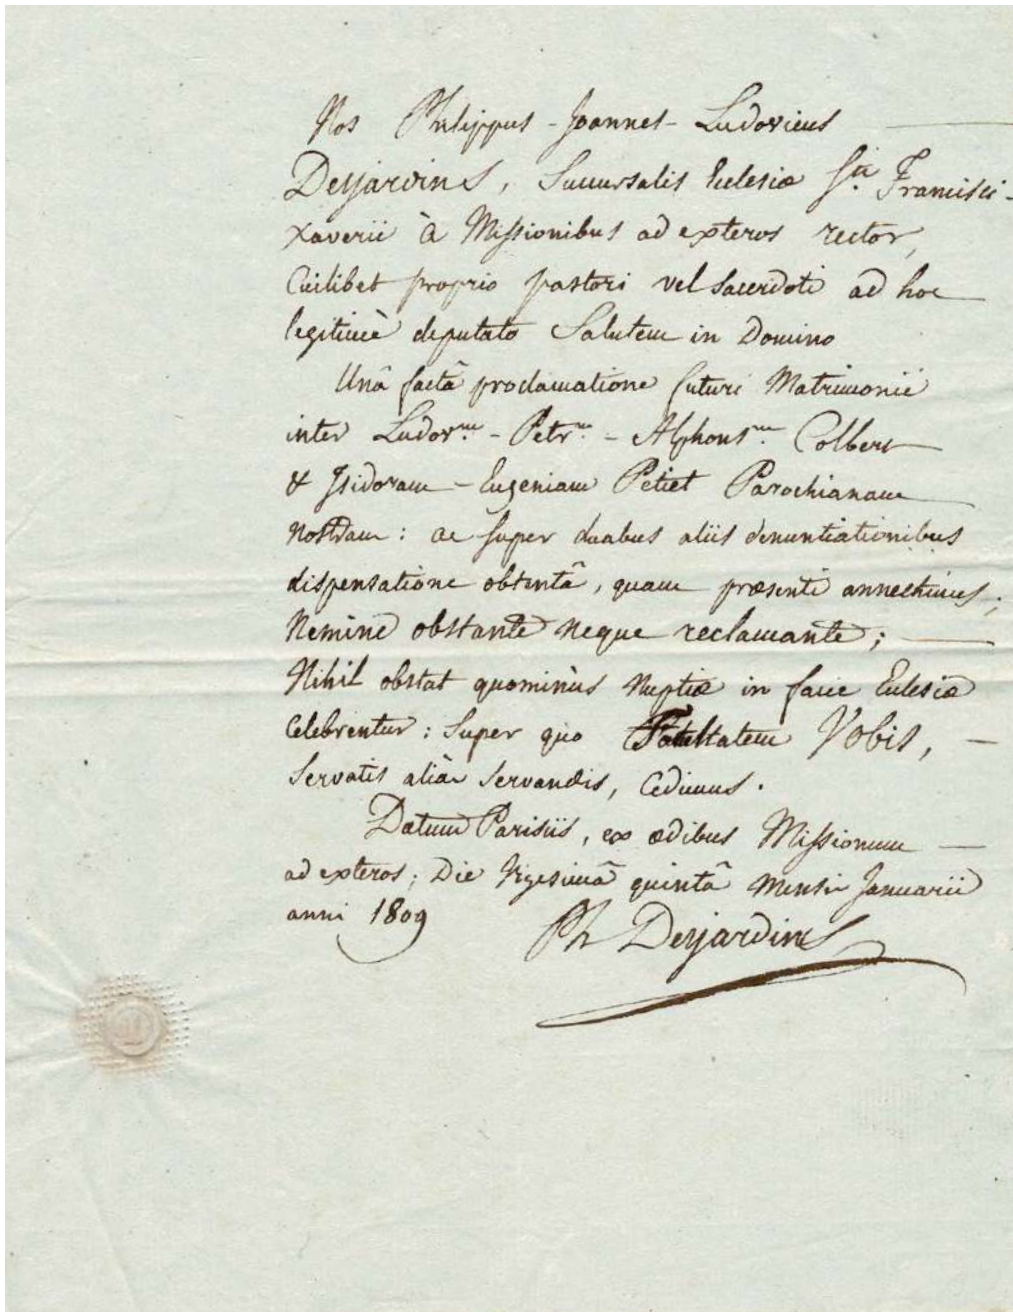 Nos Philippus - Joannes - Ludovicus
Desjardins, Succursalis Ecclesiæ Sti. Francisci-
Xaverii à Missionibus ad exteros rector,
Cuilibet proprio pastori vel Sacerdoti ad hoc
legitimè deputato Salutem in Domino
Unâ factâ proclamatione futuri Matrimonii
inter Ludovm. - Petrm. - Alphonsm. Colbert
& Isidoram - Eugeniam Petiet Parochianam
nostram : ac super duabus aliis denuntiationibus
dispensatione obtentâ, quam præsenti annectimus;
Nemine obstante neque reclamante;
Nihil obstat quominùs Nuptiæ in facie Eclesiæ
Celebrentur : Super quo Facultatem Vobis,
Servatis aliàs Servandis, Cedimus.
Datum Parisiis, ex ædibus Missionum
ad exteros; Die Vigesimâ quintâ Mensis Januarii
anni 1809 Ph Desjardins